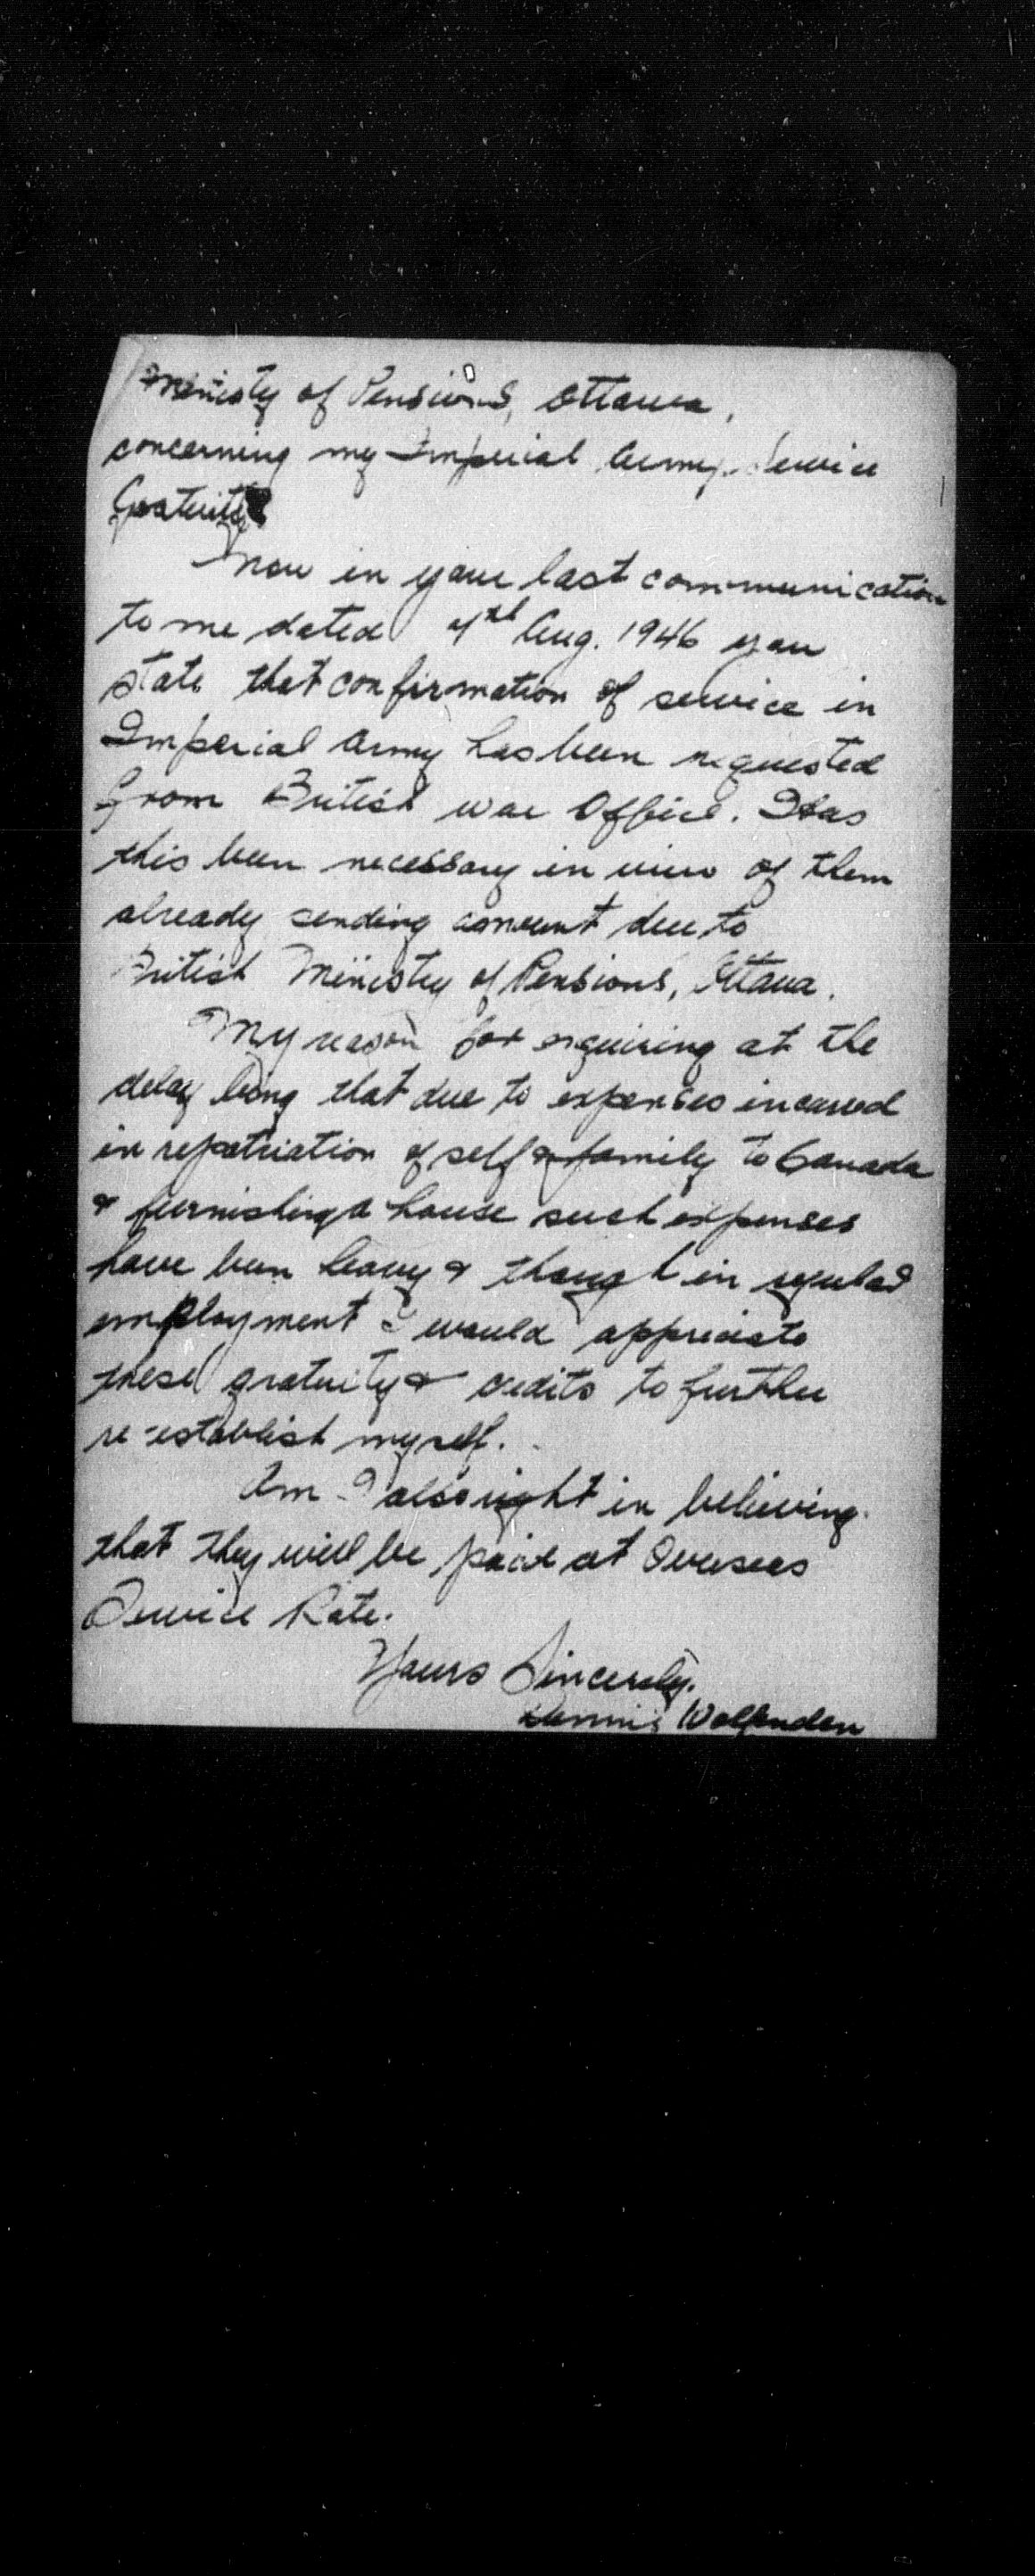 Ministy of Pensions, Ottawa,
concerning my Imperial Army Service
Gratuity
Now in your last communication
to me dated Aug. 1946 you
state that confirmation of service in
Imperial Army has been requested
from British War Office. Has
this been necessary in view of them
already sending amount due to
British Ministry of Pensions, Ottawa.
My reason for enquiring at the
delay being that due to expenses incurred
in repatriation of self & family to Canada
& furnishing a house such expenses
have been heavy & though in regular
employment I would appreciate
these gratuity & credits to further
re-establish myself.
Am I also right in believing
that they will be paid at Overseas
Service Rate.
Yours Sincerely.
Dennis Wolfenden